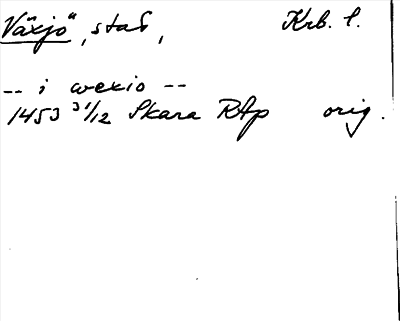 Växjö, stad, Krb. l.
-- i wexio --
1453 31/12 Skara RAp orig.